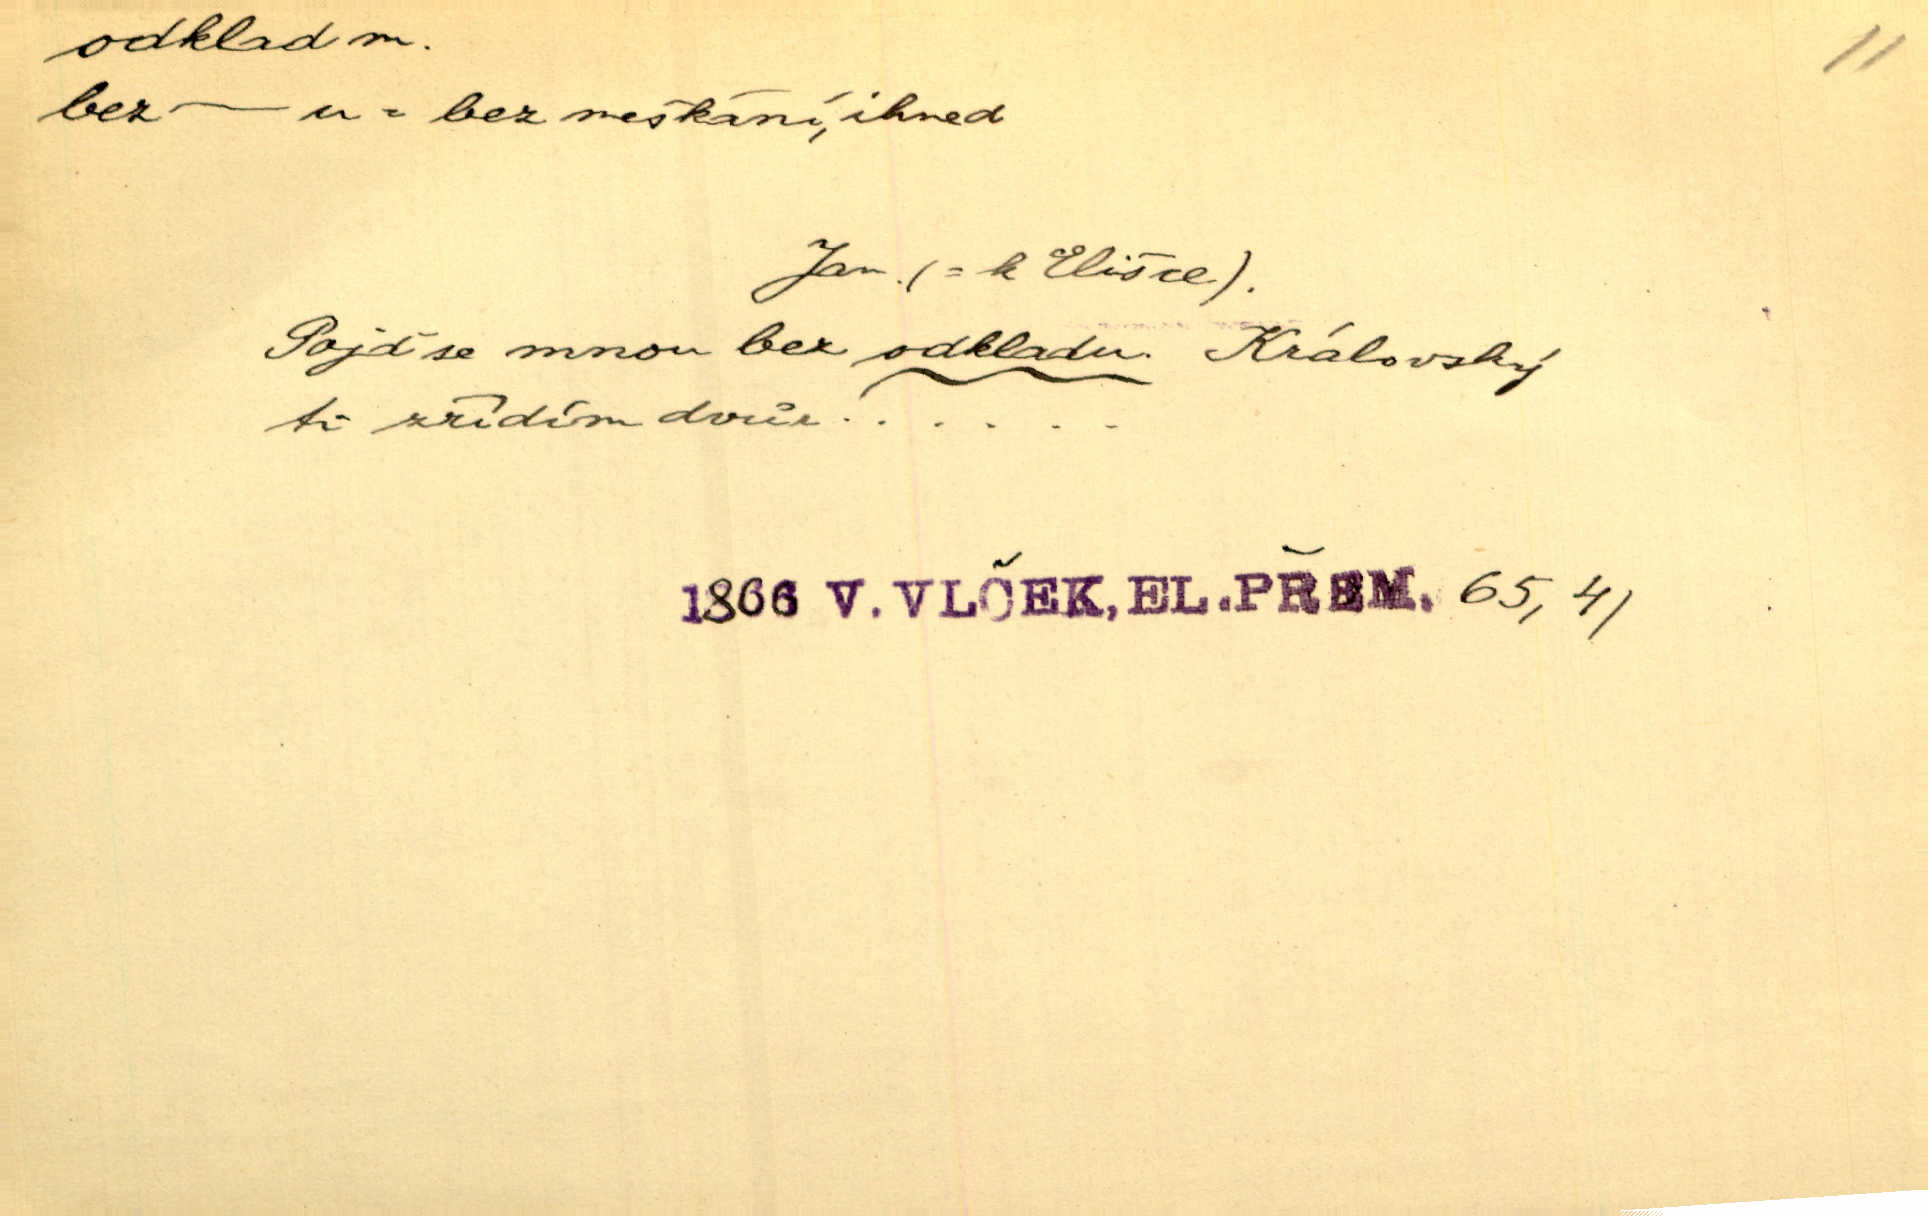 odklad m.
11
bez — u = bez meškání, ihned
Jan. (= k Elišce).
Pojď se mnou bez odkladu. Královský
ti zřídím dvůr . . . . . .
1866 V. VLČEK, EL. PŘEM. 65, 4)